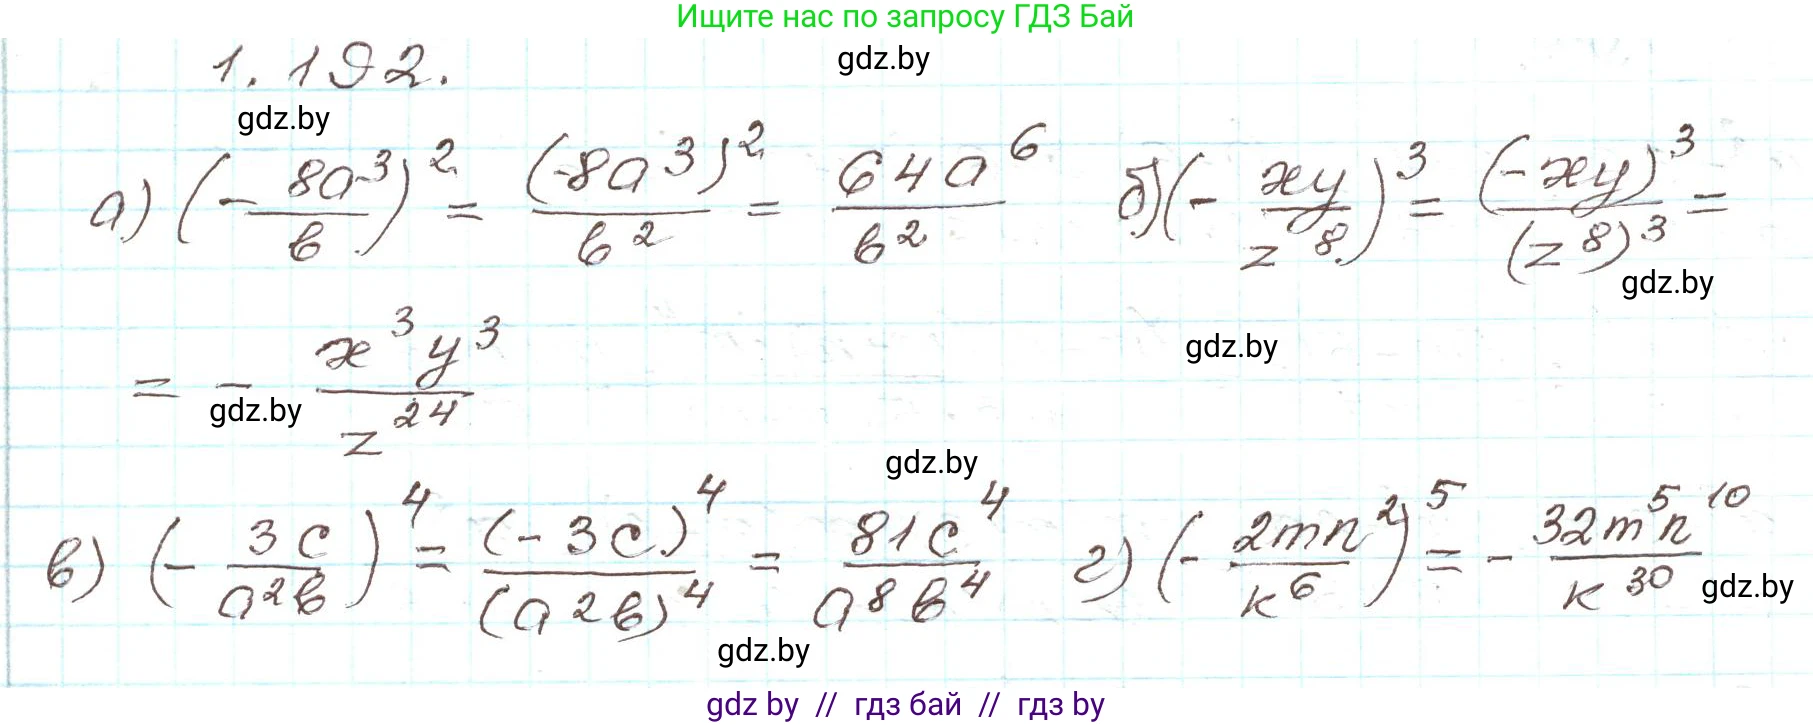 Ищите нас по запросу ГДЗ Бай
1.192.
gdz.by
gdz.by
а) (- 8a³/b)² = (-8a³)²/b² = 64a⁶/b² б) (- xy/z⁸)³ = (-xy)³/(z⁸)³ =
gdz.by
= - x³y³/z²⁴
gdz.by
gdz.by
gdz.by
в) (- 3c/a²b)⁴ = (-3c)⁴/(a²b)⁴ = 81c⁴/a⁸b⁴ г) (- 2mn²/k⁶)⁵ = - 32m⁵n¹⁰/k³⁰
gdz.by
gdz.by
gdz by // гдз бай // гдз by